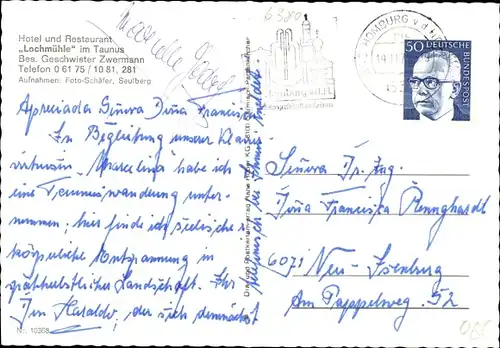 6380
Hotel und Restaurant
„Lochmühle" im Taunus
Bes. Geschwister Zwermann
Telefon 0 61 75 / 10 81, 281
Aufnahmen: Foto-Schäfer, Seulberg
HOMBURG v d
50
DEUTSCHE BUNDESPOST
Apreciada Señora Doña Francisca
In Begleitung unserer Klavier-
virtuosin „Marcelina" habe ich
eine Taunuswanderung unter-
nommen; hier finde ich seelische u.
körperliche Entspannung in
spätherbstlicher Landschaft. Ihr
Don Haraldo, der sich demnächst
bei Ihnen meldet.
Señora Dr. Ing.
Doña Francisca Rennghardt
6071 Neu-Isenburg
Am Pappelweg 52
Nr. 10368